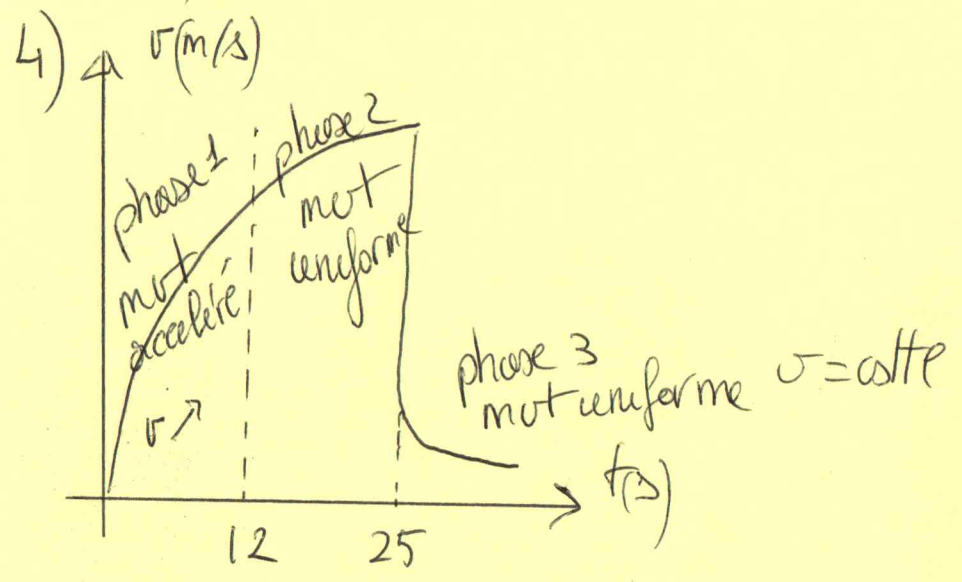 4)
v(m/s)
phase 1
mvt
accéléré
v ↗
phase 2
mvt
uniforme
phase 3
mvt uniforme v = cstte
t(s)
12 25